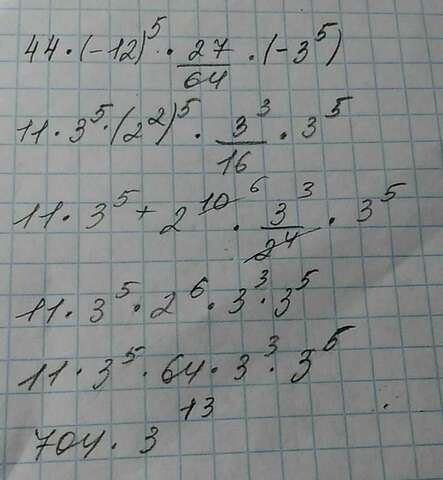 44 · (-12)⁵ · 27/64 · (-3⁵)
11 · 3⁵ · (2²)⁵ · 3³/16 · 3⁵
11 · 3⁵ + 2¹⁰ ⁶ · 3³/2⁴ · 3⁵
11 · 3⁵ · 2⁶ · 3³ · 3⁵
11 · 3⁵ · 64 · 3³ · 3⁵
704 · 3¹³